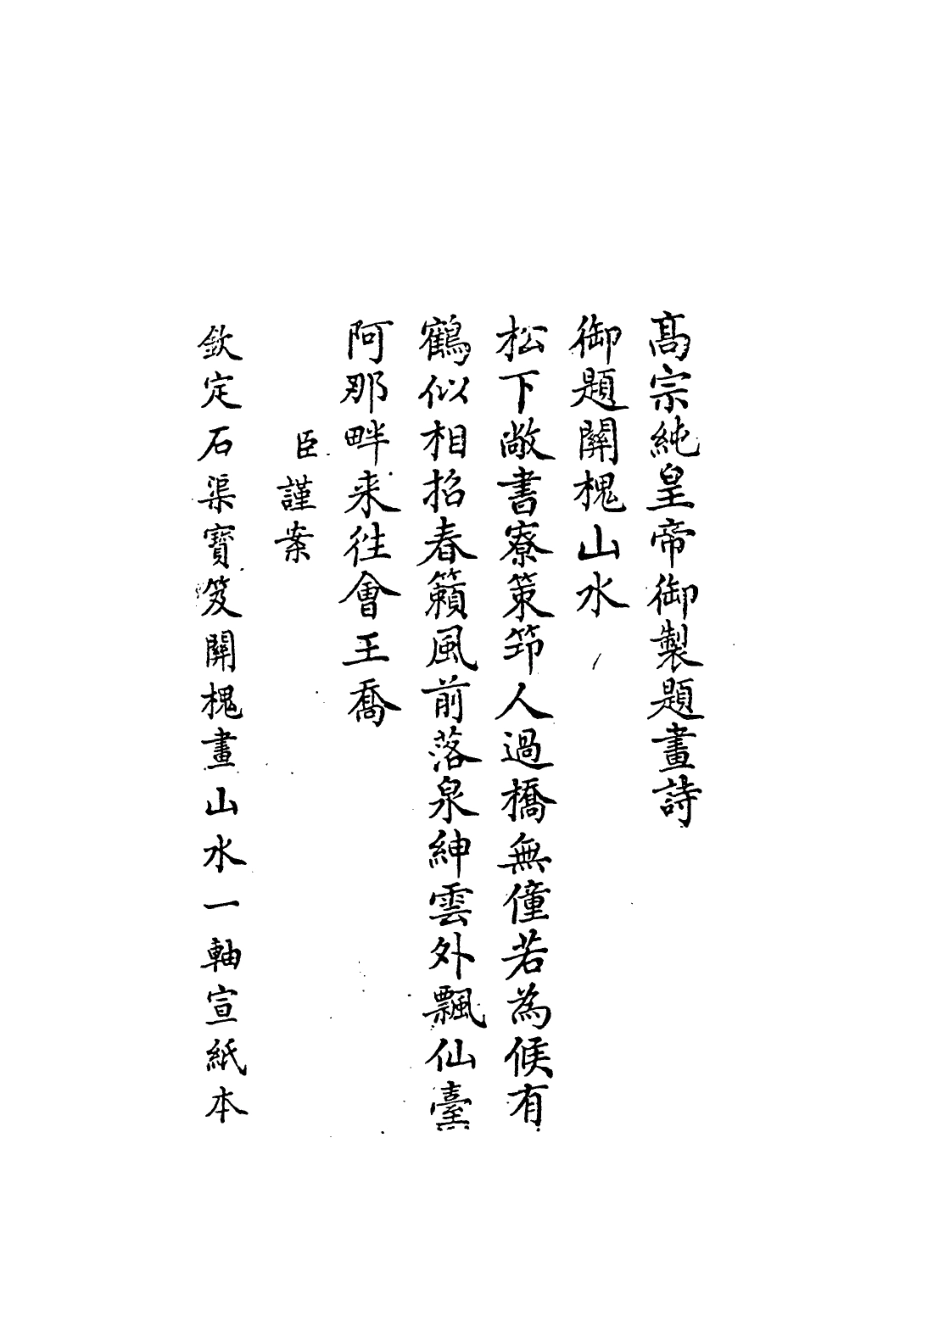 高宗純皇帝御製題畫詩
御題關槐山水
松下敞書寮策筇人過橋無僮若為候有
鶴似相招春籟風前落泉紳雲外飄仙臺
阿那畔来往會王喬
臣謹案
欽定石渠寶笈關槐畫山水一軸宣紙本